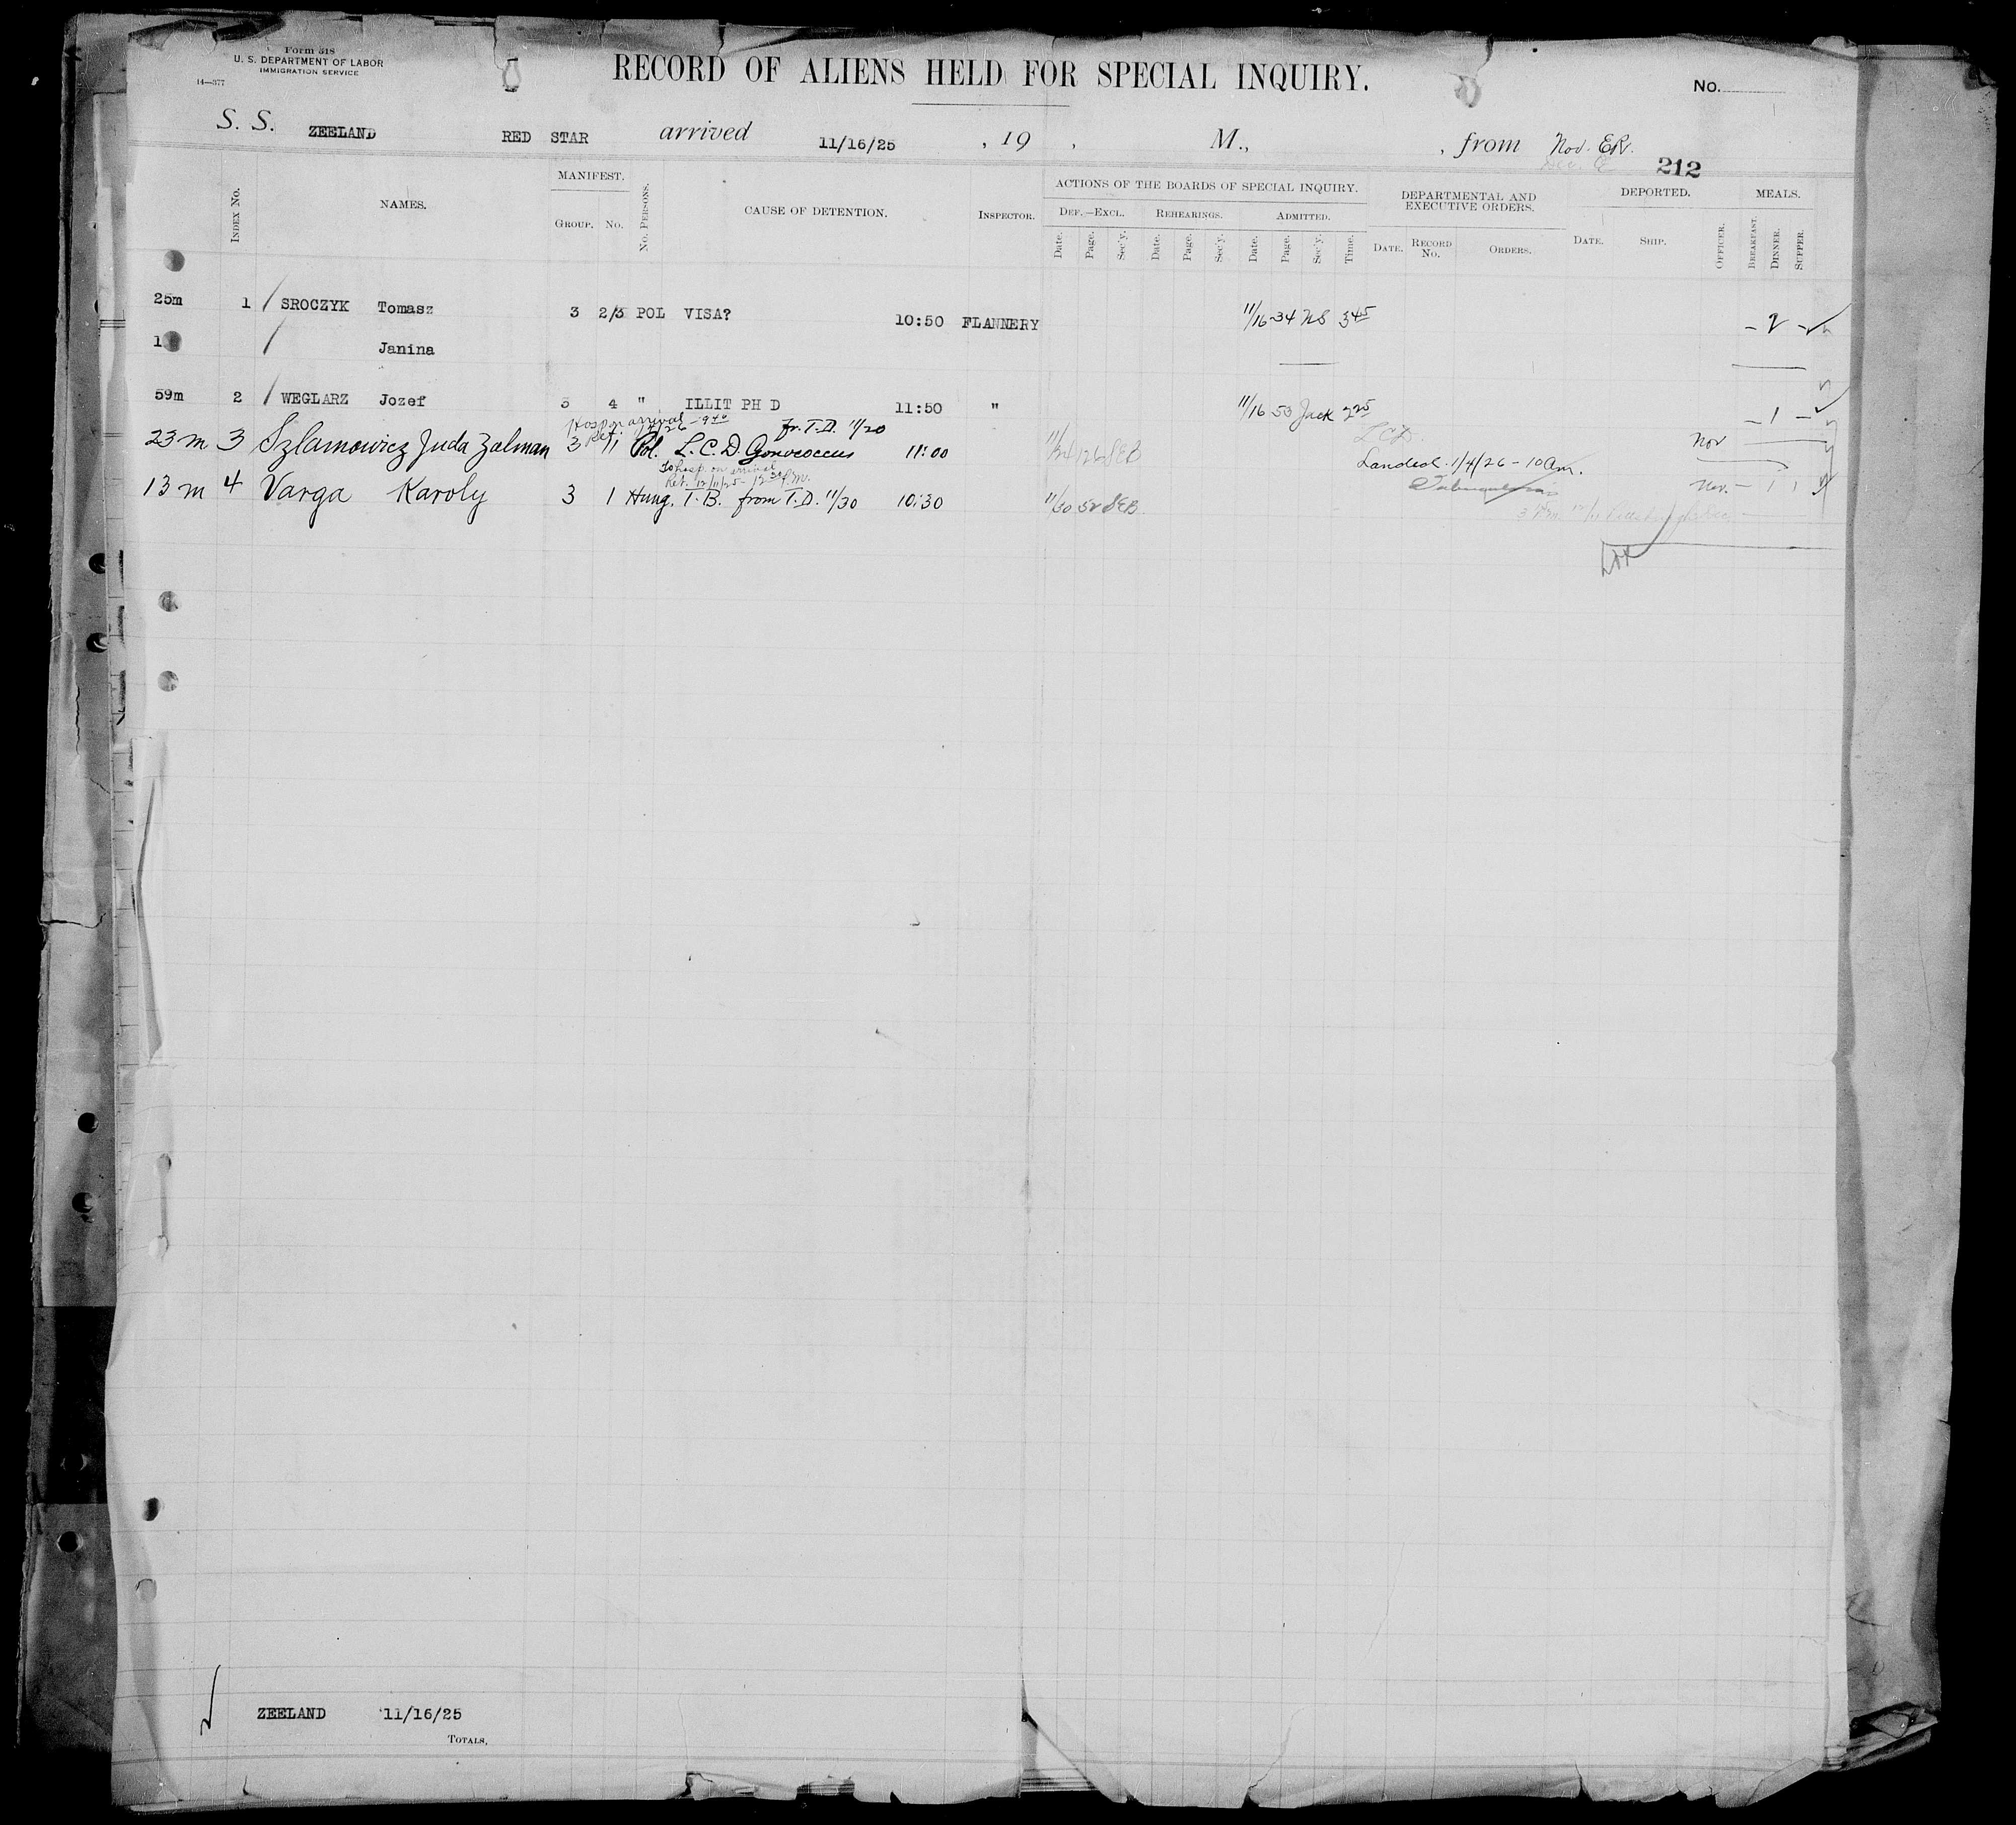 Form 518
U. S. DEPARTMENT OF LABOR
IMMIGRATION SERVICE
14—377
RECORD OF ALIENS HELD FOR SPECIAL INQUIRY.
No.
S. S. ZEELAND RED STAR arrived 11/16/25 , 19 , M., , from Nov. ER.
Dec. 212
INDEX NO. NAMES. MANIFEST. GROUP. NO. NO. PERSONS. CAUSE OF DETENTION. INSPECTOR. ACTIONS OF THE BOARDS OF SPECIAL INQUIRY. DEPARTMENTAL AND EXECUTIVE ORDERS. DEPORTED. MEALS.
DEF.—EXCL. REHEARINGS. ADMITTED.
Date. Page. Sec'y. Date. Page. Sec'y. Date. Page. Sec'y. Time. DATE. RECORD NO. ORDERS. DATE. SHIP. OFFICER. BREAKFAST. DINNER. SUPPER.
25m 1 / SROCZYK Tomasz 3 2/3 POL VISA? 10:50 FLANNERY 11/16 34 NS 3 45 – 2 –
1 / Janina
59m 2 / WEGLARZ Jozef 3 4 " ILLIT PH D 11:50 " 11/16 53 Jack 2 25 – 1 –
Hosp on arrival fr. T.D. 11/20
Ret. 1/4/26 – 9 40
L C D.
23 m 3 Szlamowicz Juda Zalman 3 11 Pol. L. C. D. Gonococcus 11:00 11/24 126 SEB Nov
Landed 1/4/26 – 10 am.
To hosp. on arrival
Ret. 12/11/25 – 12 30 P.M.
13 m 4 Varga Karoly 3 1 Hung. T. B. from T.D. 11/30 10:30 11/30 58 SEB Tuberculosis Nov. – 1 1
ZEELAND 11/16/25
TOTALS,